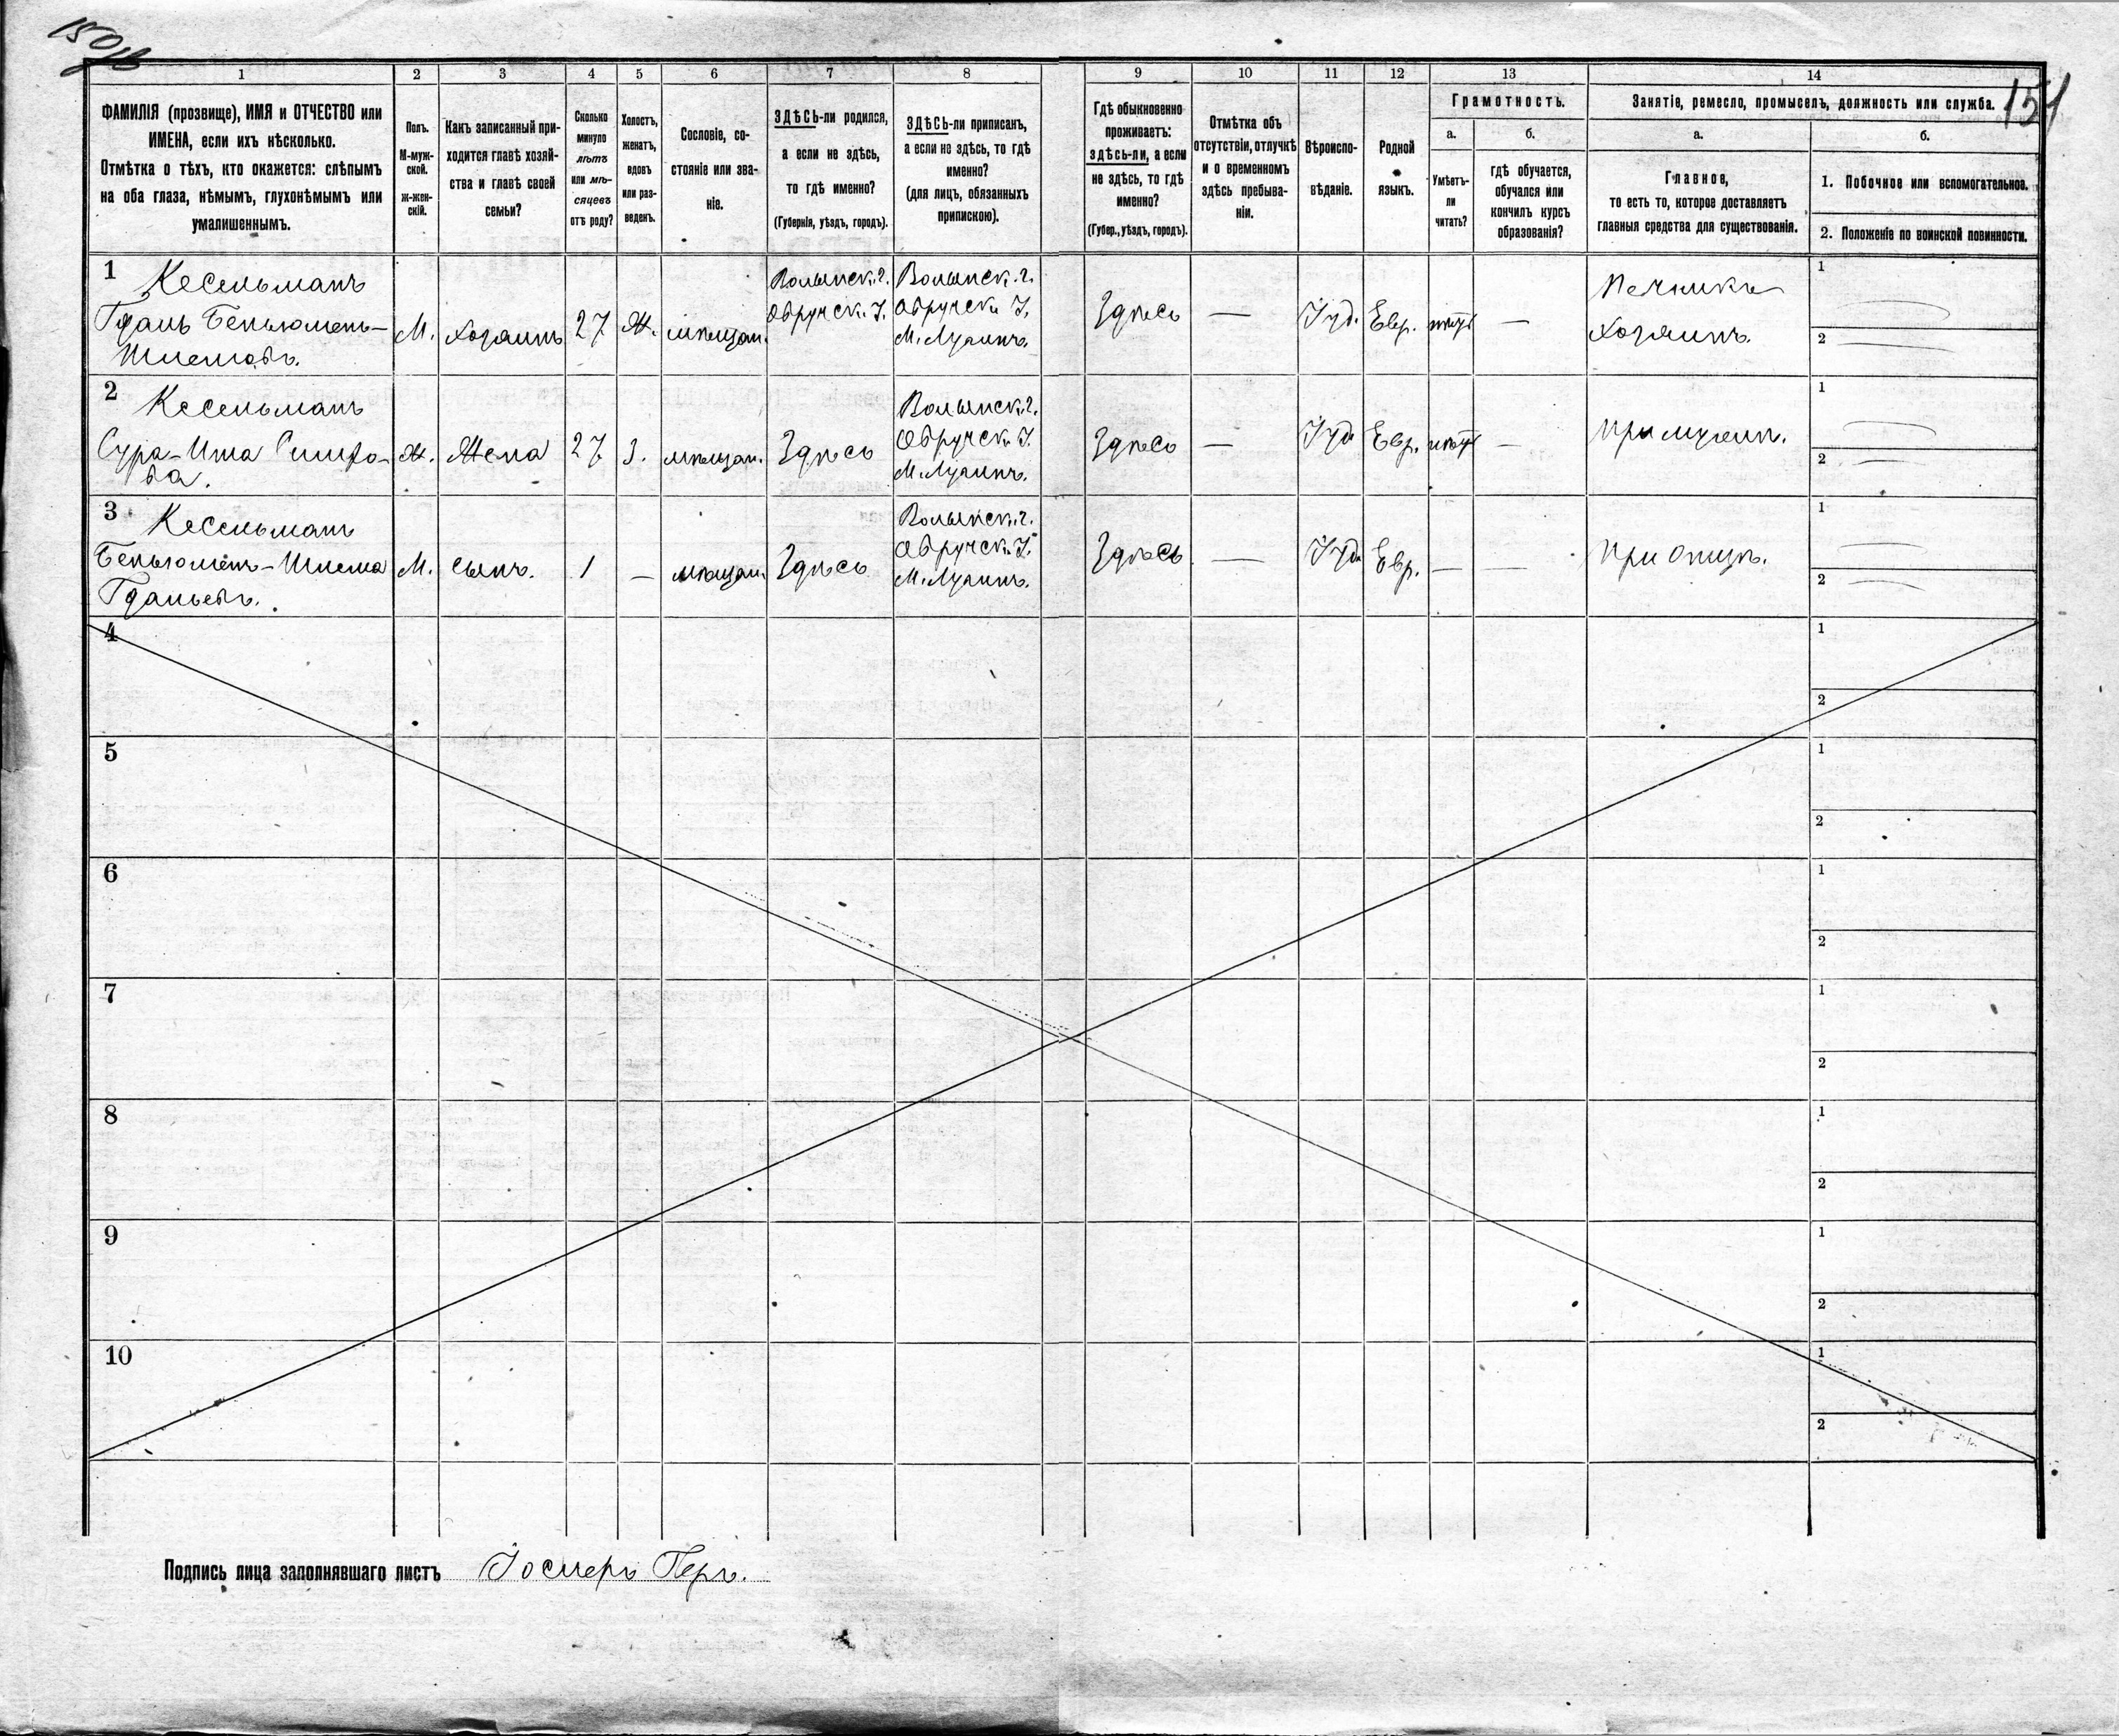 150 об
151
1 2 3 4 5 6 7 8 9 10 11 12 13 14
ФАМИЛІЯ (прозвище), ИМЯ и ОТЧЕСТВО или
ИМЕНА, если ихъ нѣсколько.
Отмѣтка о тѣхъ, кто окажется: слѣпымъ
на оба глаза, нѣмымъ, глухонѣмымъ или
умалишеннымъ.
Полъ.
М-муж-
ской.
ж-жен-
скій.
Какъ записанный при-
ходится главѣ хозяй-
ства и главѣ своей
семьи?
Сколько
минуло
лѣтъ
или мѣ-
сяцевъ
отъ роду?
Холостъ,
женатъ,
вдовъ
или раз-
веденъ.
Сословіе, со-
стояніе или зва-
ніе.
ЗДѢСЬ-ли родился,
а если не здѣсь,
то гдѣ именно?
(Губернія, уѣздъ, городъ).
ЗДѢСЬ-ли приписанъ,
а если не здѣсь, то гдѣ
именно?
(для лицъ, обязанныхъ
припискою).
Гдѣ обыкновенно
проживаетъ:
здѣсь-ли, а если
не здѣсь, то гдѣ
именно?
(Губер., уѣздъ, городъ).
Отмѣтка объ
отсутствіи, отлучкѣ
и о временномъ
здѣсь пребыва-
ніи.
Вѣроиспо-
вѣданіе.
Родной
языкъ.
Грамотность.
а.
Умѣетъ-
ли
читать?
б.
гдѣ обучается,
обучался или
кончилъ курсъ
образованія?
Занятіе, ремесло, промыселъ, должность или служба.
а.
Главное,
то есть то, которое доставляетъ
главныя средства для существованія.
б.
1. Побочное или вспомогательное.
2. Положеніе по воинской повинности.
1
Кесельманъ
Гданъ Беньюмень-
Шлемовъ.
М.
хозяинъ
27
Ж.
мѣщан.
Волынск. г.
Овручск. У.
Волынск. г.
Овручск. У.
М. Лугинъ.
Здѣсь
—
Іуд.
Евр.
нѣтъ
—
Печникъ
хозяинъ.
1
2
2
Кесельманъ
Сура-Ита
ва.
ж.
Жена
27
З.
мѣщан.
Здѣсь
Волынск. г.
Овручск. У.
М. Лугинъ.
Здѣсь
—
Іуд.
Евр.
нѣтъ
—
При мужѣ.
1
2
3
Кесельманъ
Беньюменъ-Шлема
Гданьевъ.
М.
сынъ.
1
—
мѣщан.
Здѣсь
Волынск. г.
Овручск. У.
М. Лугинъ.
Здѣсь
—
Іуд.
Евр.
—
—
При отцѣ.
1
2
4
1
2
5
1
2
6
1
2
7
1
2
8
1
2
9
1
2
10
1
2
Подпись лица заполнявшаго листъ